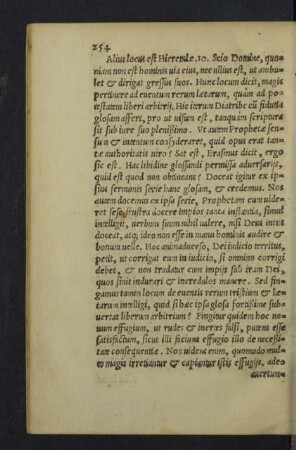 254
Alius locus est Hieremiæ. 10. Scio Domine, quo-
niam non est hominis via eius, nec ullius est, ut ambu-
let & dirigat gressus suos. Hunc locum dicit, magis
pertinere ad eventum rerum lætarum, quàm ad po-
testatem liberi arbitrij. Hic iterum Diatribe cũ fiducia
glosam affert, pro ut visum est, tanquàm scriptura
sit sub iure suo plenissimo. Ut autem Prophetæ sen-
sum & intentum consyderaret, quid opus erat tan-
tæ authoritatis viro? Sat est, Erasmus dicit, ergo
sic est. Hac libidine glossandi permissa adversarijs,
quid est quod non obtineant? Doceat igitur ex ip-
sius sermonis serie hanc glosam, & credemus. Nos
autem docemus ex ipsa serie, Prophetam cum vide-
ret sese frustra docere impios tanta instantia, simul
intelligit, verbum suum nihil valere, nisi Deus intus
doceat, atq; ideo non esse in manu hominis audire &
bonum velle. Hoc animadverso, Dei iudicio territus,
petit, ut corrigat eum in iudicio, si omnino corrigi
debet, & non tradatur cum impijs sub iram Dei,
quos sinit indurari & incredulos manere. Sed fin-
gamus tamen locum de eventis rerum tristium & læ-
tarum intelligi, quid si hæc ipsa glosa fortissime sub-
vertat liberum arbitrium? Fingitur quidem hoc no-
vum effugium, ut rudes & inertes falsi, putent esse
satisfactum, sicut illi faciunt effugio illo de necessi-
tate consequentiæ. Non vident enim, quomodo mul-
to magis irretiantur & capiantur istis effugijs, adeo